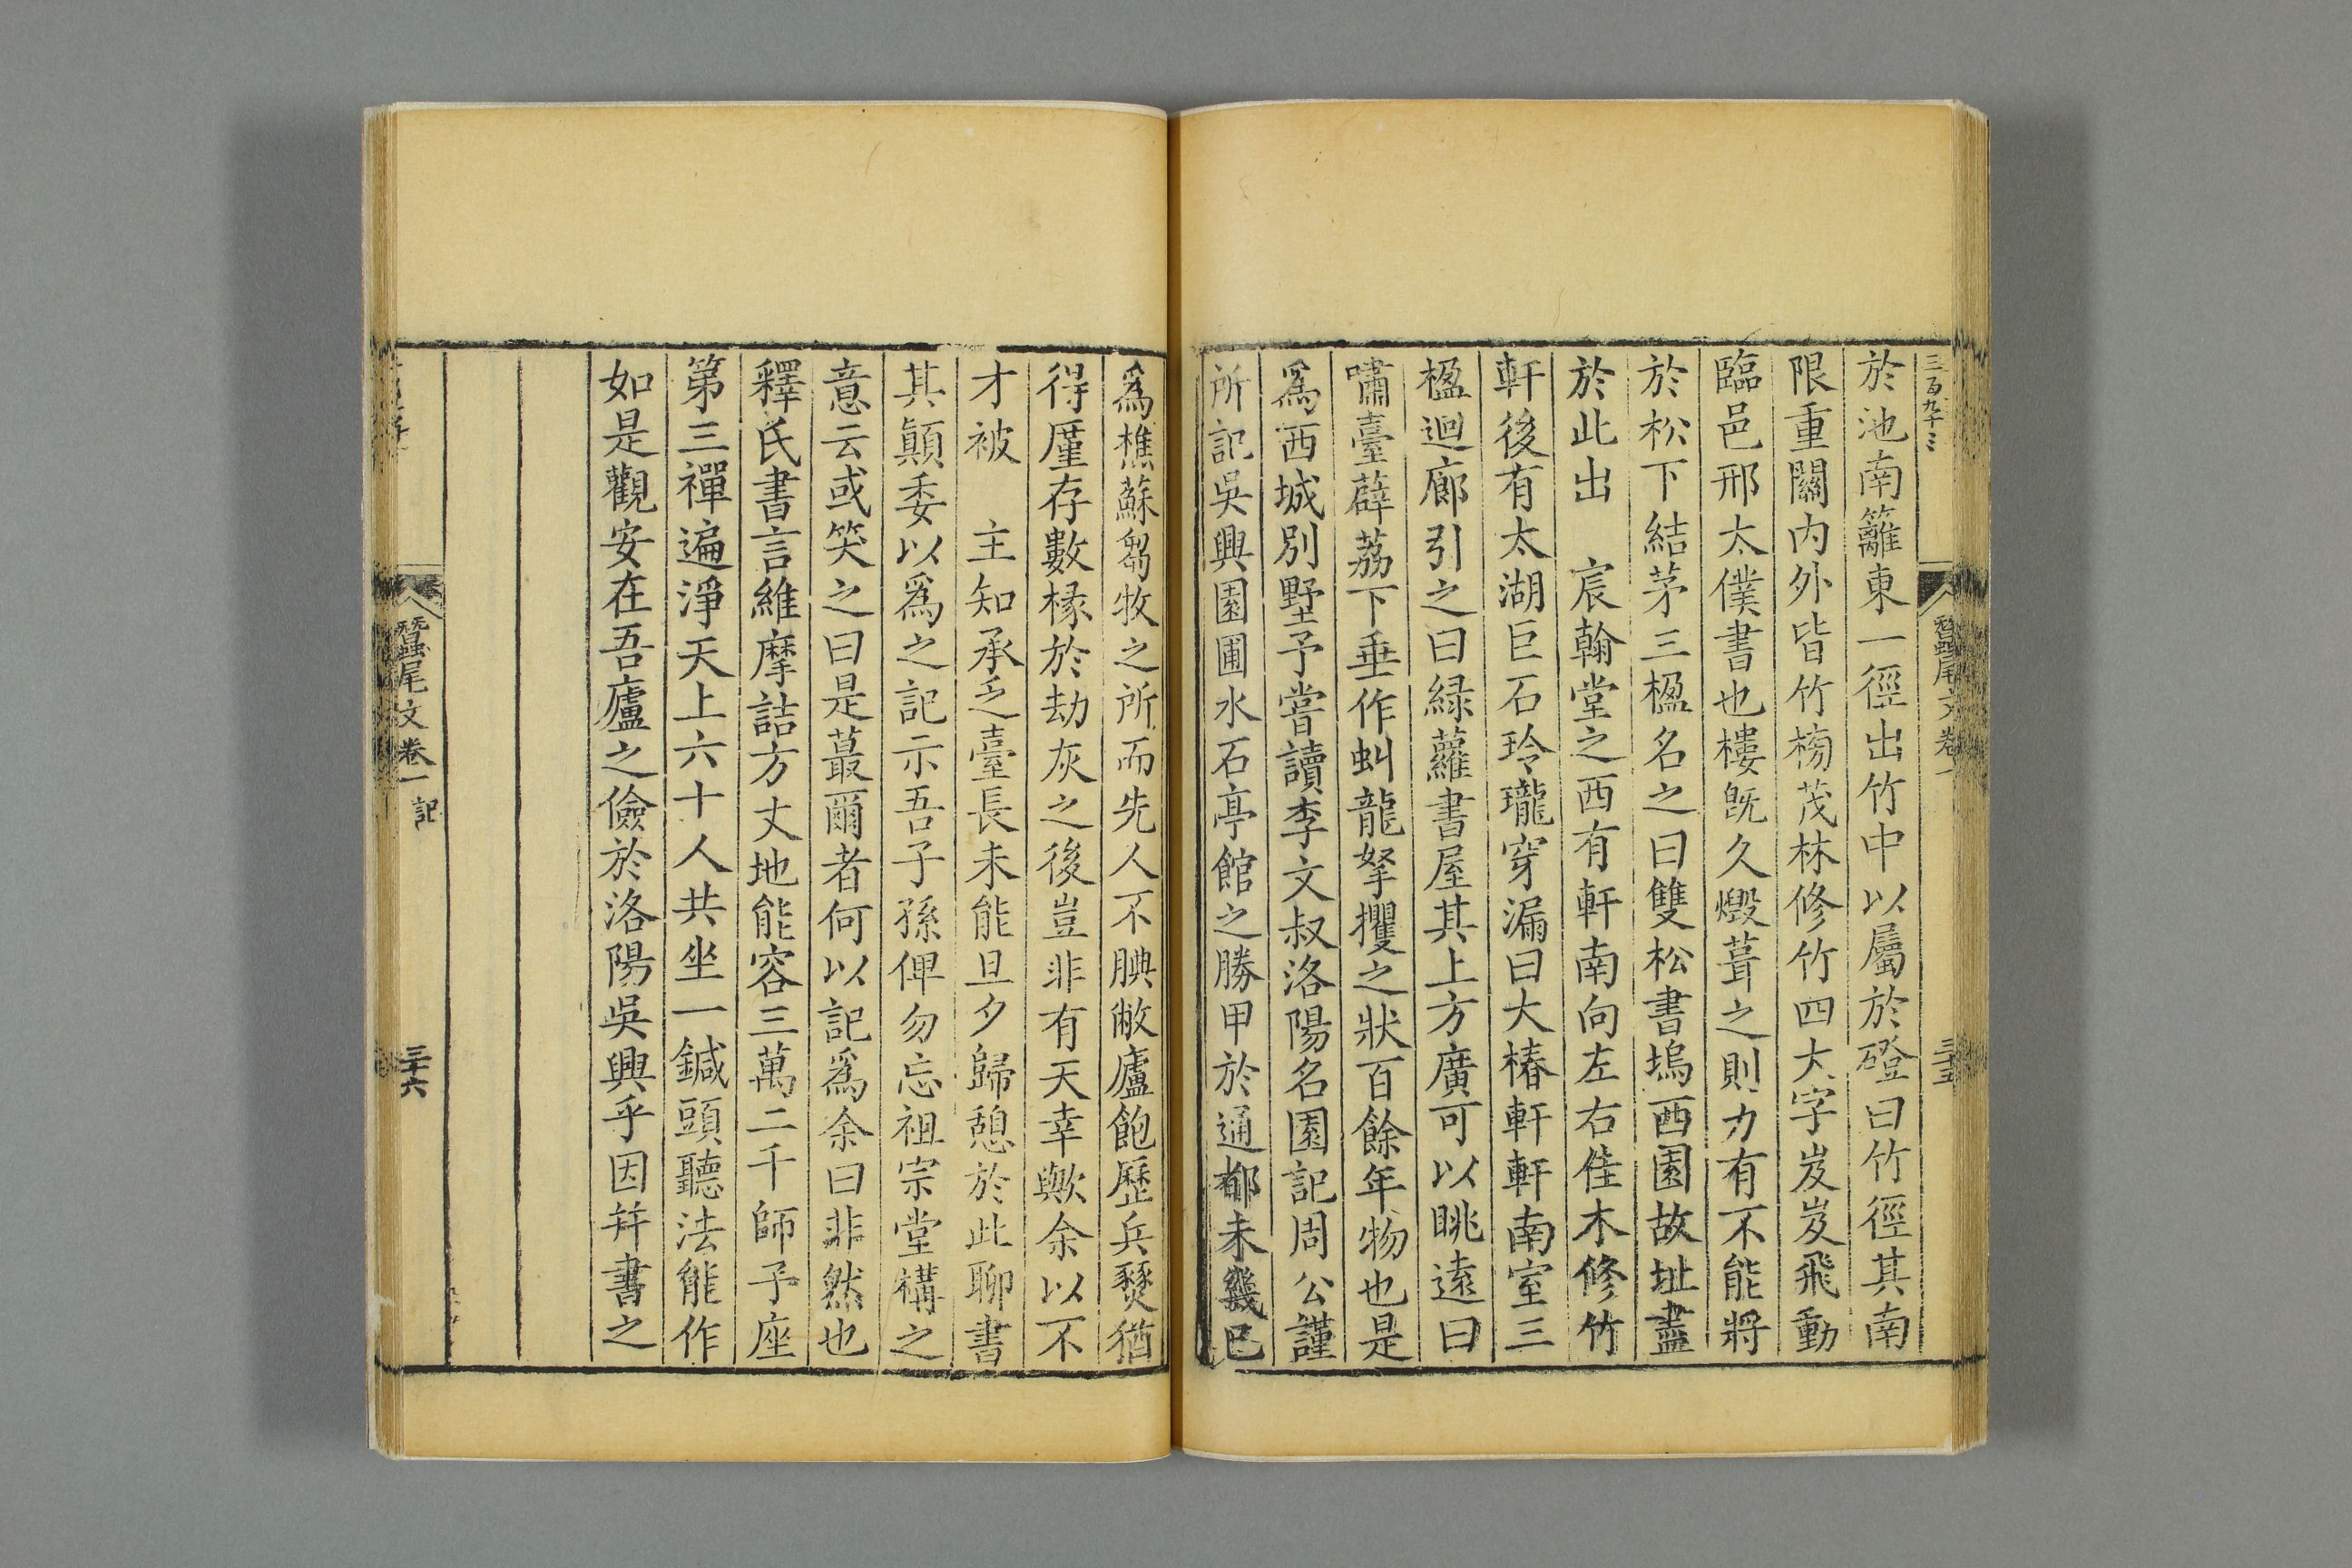 三百九十三
蠶尾文卷一
三十五
於池南籬東一徑出竹中以屬於磴曰竹徑其南
限重關內外皆竹榜茂林修竹四大字岌岌飛動
臨邑邢太僕書也樓旣久燬葺之則力有不能將
於松下結茅三楹名之曰雙松書塢西園故址盡
於此出　宸翰堂之西有軒南向左右佳木修竹
軒後有太湖巨石玲瓏穿漏曰大椿軒軒南室三
楹迴廊引之曰綠蘿書屋其上方廣可以眺遠曰
嘯臺薜荔下垂作虯龍拏攫之狀百餘年物也是
爲西城別墅予嘗讀李文叔洛陽名園記周公謹
所記吳興園圃水石亭館之勝甲於通都未幾已
爲樵蘇芻牧之所而先人不腆敝廬飽歷兵燹猶
得廑存數椽於劫灰之後豈非有天幸歟余以不
才被　主知承乏臺長未能旦夕歸憩於此聊書
其顛委以爲之記示吾子孫俾勿忘祖宗堂構之
意云或笑之曰是蕞爾者何以記爲余曰非然也
釋氏書言維摩詰方丈地能容三萬二千師子座
第三禪遍淨天上六十人共坐一鍼頭聽法能作
如是觀安在吾廬之儉於洛陽吳興乎因幷書之
蠶尾文卷一
記
三十六